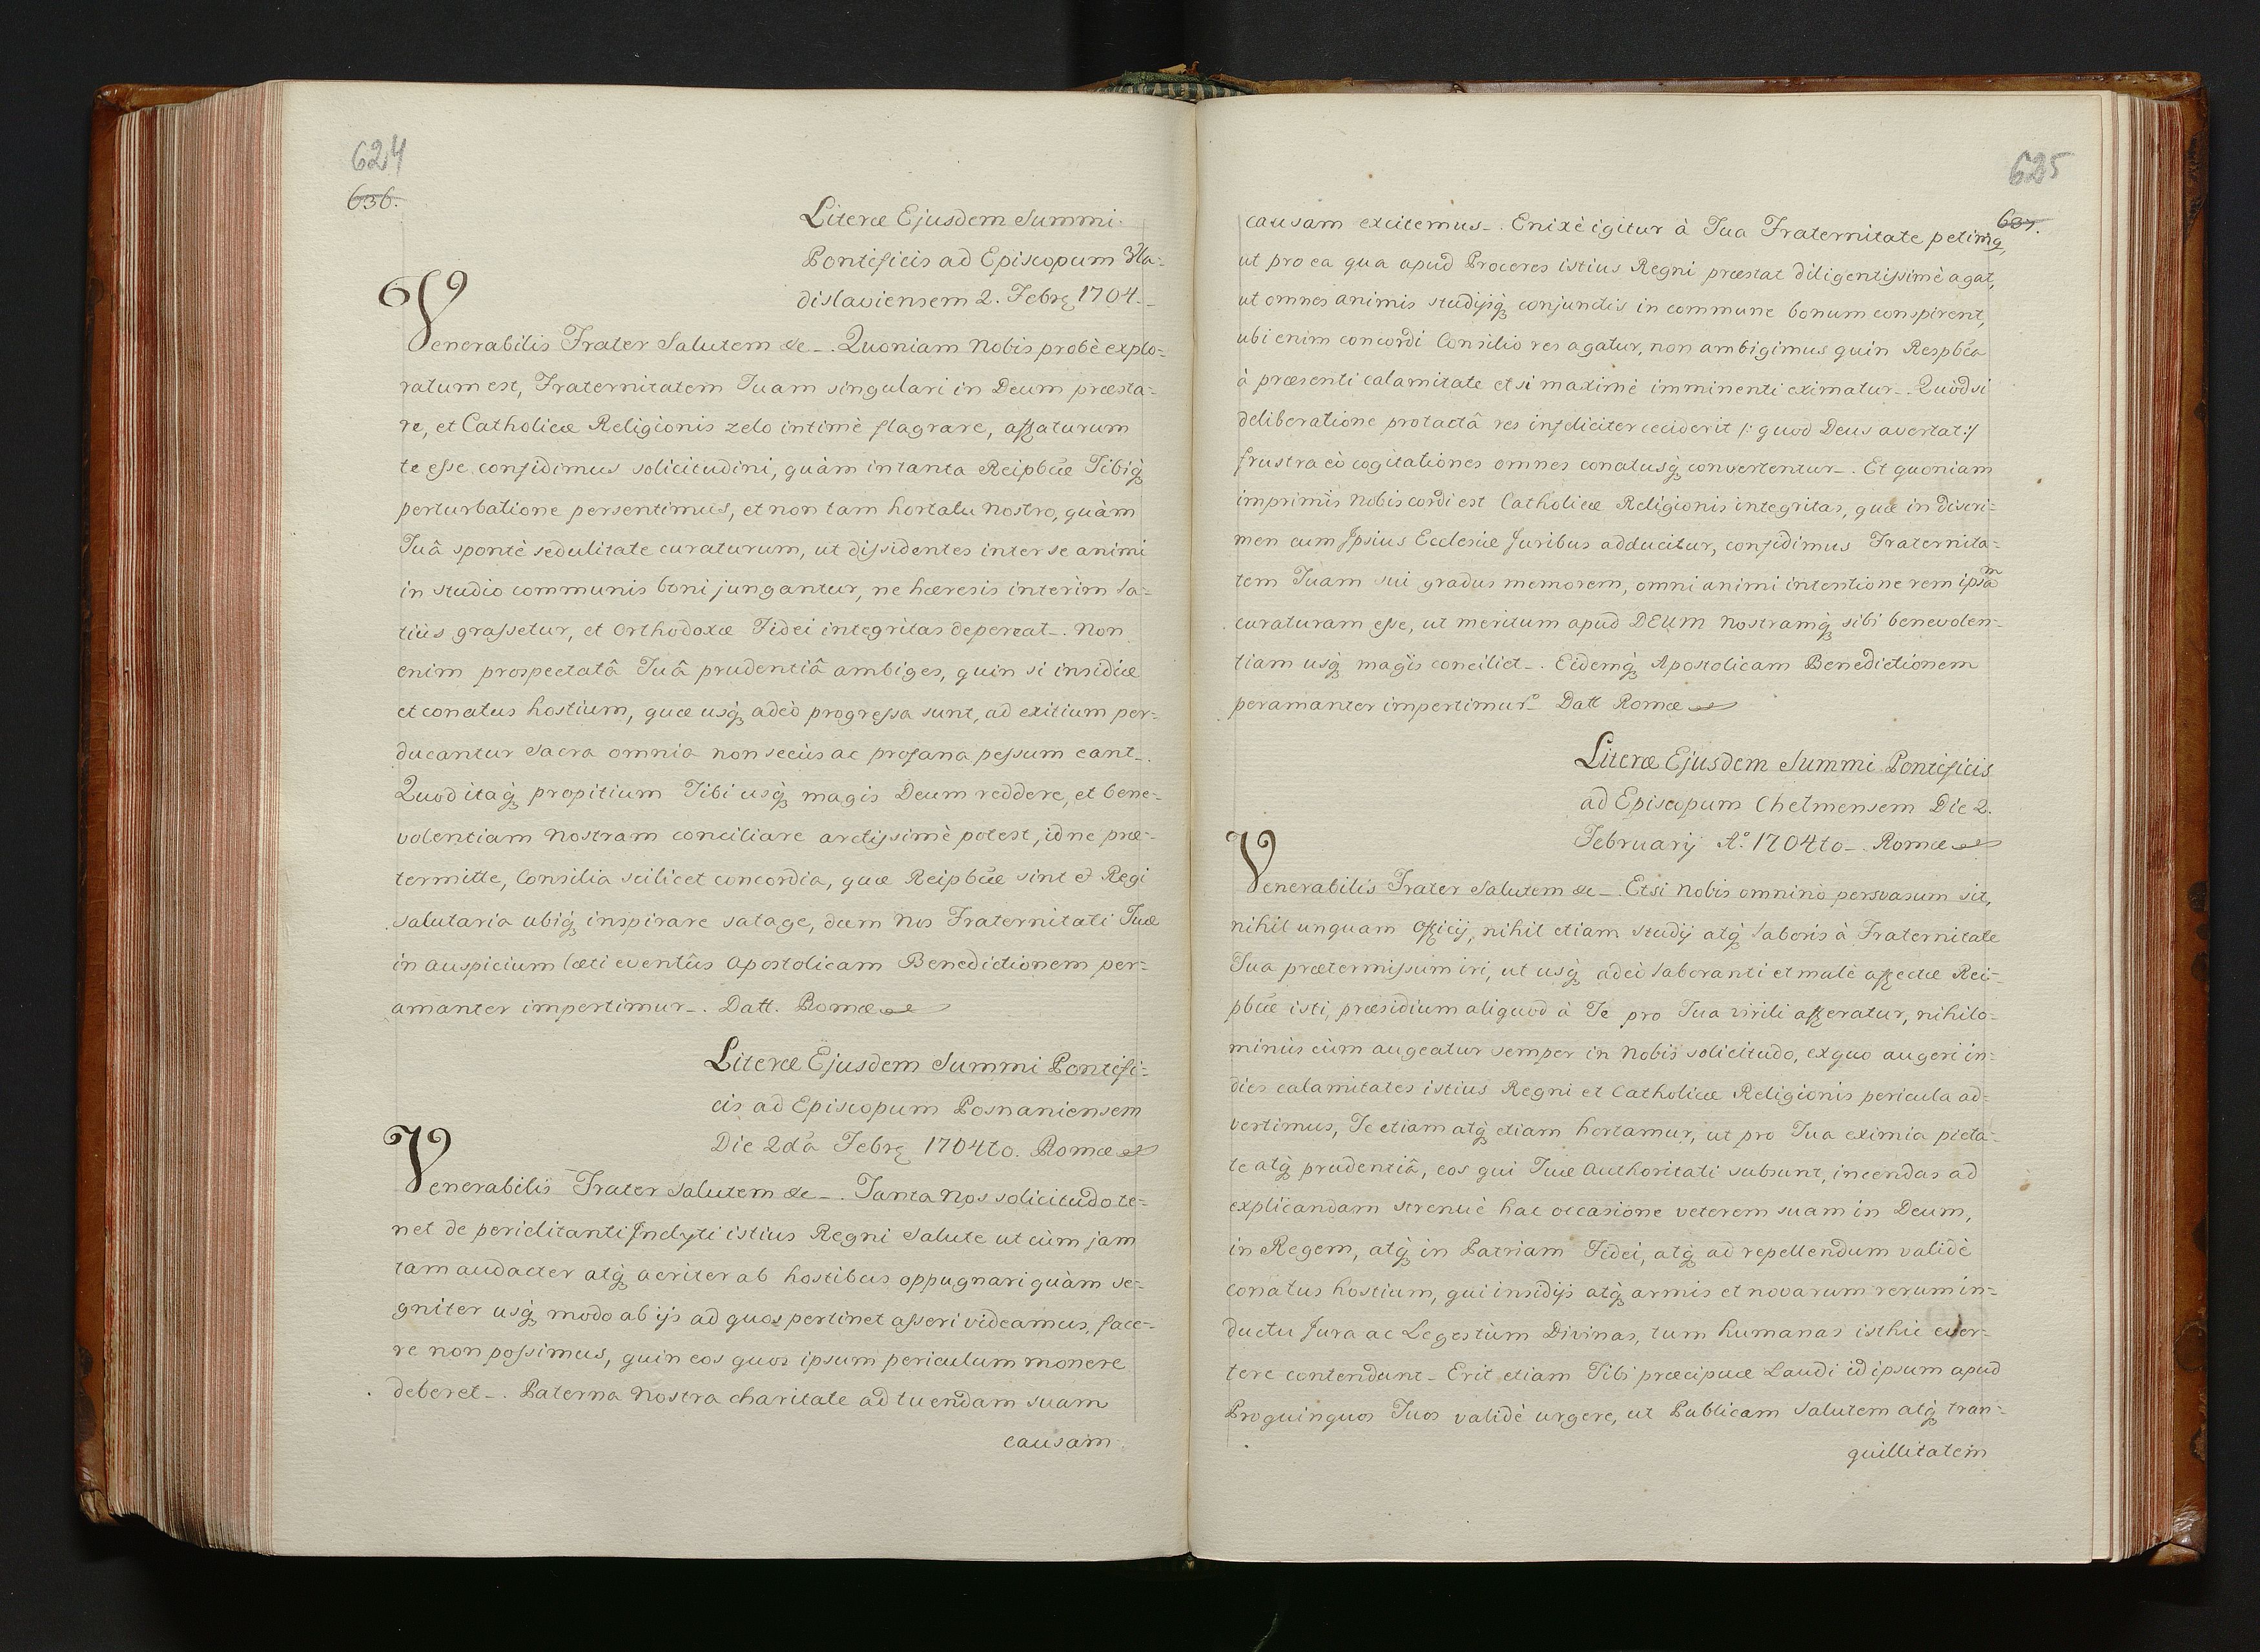 624
636.
Literæ Ejusdem Summi
Pontificis ad Episcopum Vla=
dislaviensem 2. Febrę 1704._
Venerabilis Frater Salutem &c_. Quoniam Nobis probè explo=
ratum est, Fraternitatem Tuam singulari in Deum præsta=
re, et Catholicæ Religionis zelo intimè flagrare, affaturum
te esse confidimus solicitudini, quàm in tanta Reipbĉæ Tibiq́
perturbatione persentimus, et non tam hortatu Nostro, quàm
Tuâ spontè sedulitate curaturum, ut dissidentes inter se animi
in studio communis boni jungantur, ne hæresis interim la=
tiùs grassetur, et Orthodoxæ Fidei integritas depereat_. Non
enim prospectatâ Tuâ prudentiâ ambiges, quin si insidiæ
et conatus hostium, quæ usq́ adeò progressa sunt, ad exitium per=
ducantur Sacra omnia non secùs ac profana pessum eant_.
Quod itaq́ propitium Tibi usq́ magis Deum reddere, et bene=
volentiam Nostram conciliare arctissimè potest, id ne præ=
termitte, Consilia scilicet concordia, quæ Reipbĉæ sint & Regi
salutaria ubiq́ inspirare satage, dum Nos Fraternitati Tuæ
in auspicium læti eventûs Apostolicam Benedictionem per=
amanter impertimur_. Datt. Romæ
Literæ Ejusdem Summi Pontifi=
cis ad Episcopum Posnaniensem
Die 2dâ Febrę 1704to. Romæ
Venerabilis Frater Salutem &c_. Tanta Nos solicitudo te=
net de periclitanti Inclyti istius Regni Salute ut cùm jam
tam audacter atq́ acriter ab hostibus oppugnari quàm se=
gniter usq́ modo ab ijs ad quos pertinet asseri videamus, face=
re non possimus, quin eos quos ipsum periculum monere
deberet_. Paterna Nostra charitate ad tuendam suam
causam
625
637.
causam excitemus_. Enixè igitur à Tua Fraternitate petimq,
ut pro ea qua apud Proceres istius Regni præstat diligentissimè agat,
ut omnes animis studijsq́ conjunctis in commune bonum conspirent,
ubi enim concordi Consilio res agatur, non ambigimus quin Respbĉa
à præsenti calamitate etsi maximè imminenti eximatur_. Quòd si
deliberatione protactâ res infeliciter ceciderit /: quod Deus avertat :/
frustra eò cogitationes omnes conatusq́ convertentur_. Et quoniam
imprimis Nobis cordi est Catholicæ Religionis integritas, quæ in discri=
men cum Ipsius Ecclesiæ Juribus adducitur, confidimus Fraternita=
tem Tuam sui gradus memorem, omni animi intentione rem ipsam
curaturam esse, ut meritum apud DEUM Nostramq́ sibi benevolen=
tiam usq́ magis conciliet_. Eidemq́ Apostolicam Benedictionem
peramanter impertimur_. Datt Romæ
Literæ Ejusdem Summi Pontificis
ad Episcopum Chelmensem Die 2.
Februarij Aº 1704to_. Romæ
Venerabilis Frater Salutem &c_. Etsi Nobis omninò persvasum sit,
nihil unquam Officij, nihil etiam studij atq́ laboris à Fraternitate
Tua prætermissum iri, ut usq́ adeò laboranti et malè affectæ Rei=
pbĉæ isti, præsidium aliquod à Te pro Tua virili afferatur, nihilo=
minùs cùm augeatur semper in Nobis solicitudo, ex quo augeri in=
dies calamitates istius Regni et Catholicæ Religionis pericula ad=
vertimus, Te etiam atq́ etiam hortamur, ut pro Tua eximia pieta=
te atq́ prudentiâ, eos qui Tuæ Authoritati subsunt, incendas ad
explicandam strenuè hac occasione veterem suam in Deum,
in Regem, atq́ in Patriam Fidei, atq́ ad repellendum validè
conatus hostium, qui insidijs atq́ armis et novarum rerum in=
ductu Jura ac Leges tùm Divinas, tum humanas isthic ever=
tere contendunt_ Erit etiam Tibi præcipuæ Laudi id ipsum apud
Proquinquos Tuos validè urgere, ut Publicam Salutem atq́ tran=
quillitatem